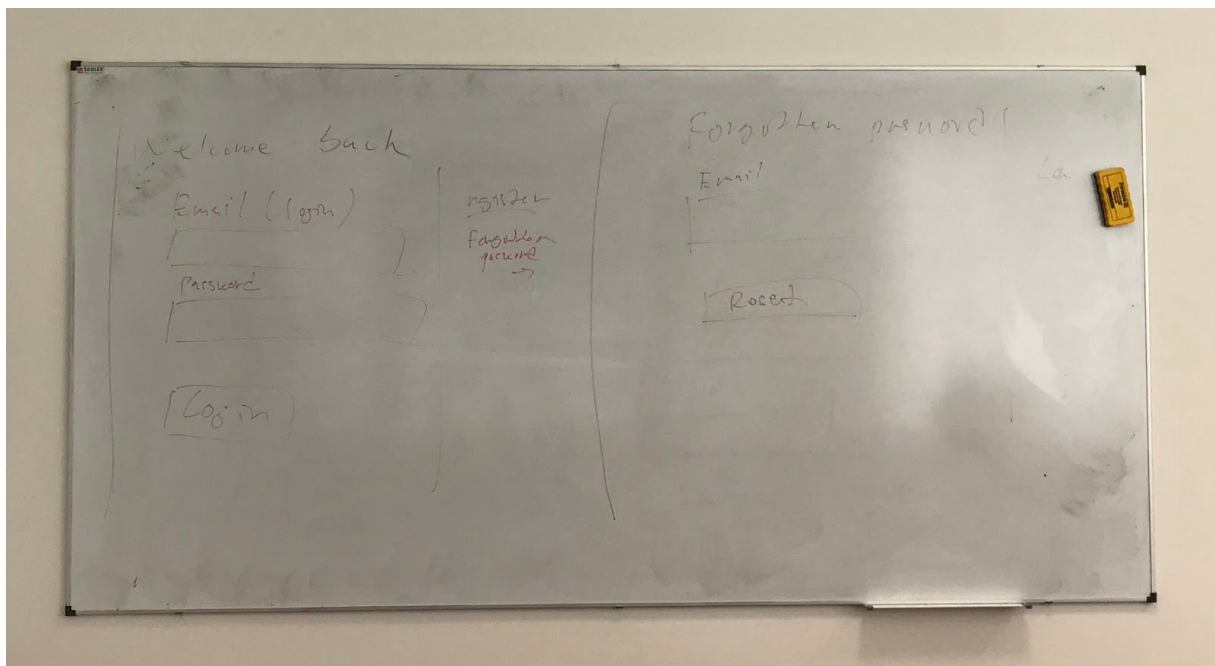 Welcome back
Email (login)
Password
Login
register
forgotten
password
→
Forgotten password
Email
Reset